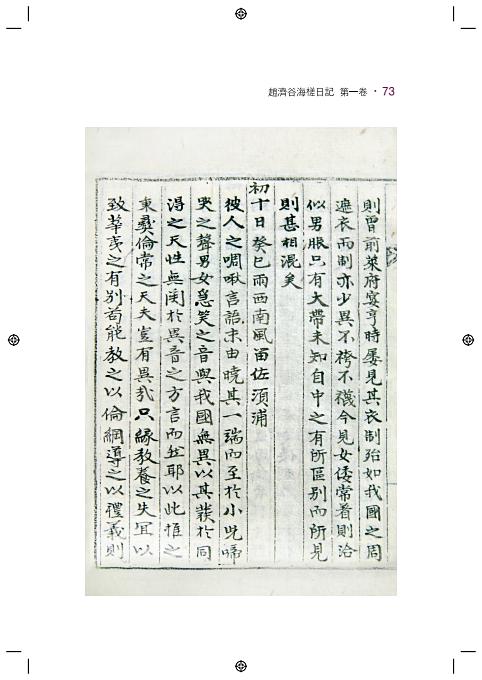 趙濟谷海槎日記 第一卷 · 73
則曾前萊府宴亨時屡見其衣制殆如我國之周
遮衣而制亦少異不袴不襪今見女倭常着則洽
似男服只有大帶未知自中之有所區別而所見
則甚相混矣
初十日癸巳雨西南風留佐須浦
彼人之啁啾言語末由曉其一端而至於小児啼
哭之聲男女急笑之音與我國無異以其發於同
得之天性無関於異音之方言而然耶以此推之
秉彜倫常之天夫豈有異㦲只緣敎養之失冝以
致華夷之有別苟能敎之以倫綱導之以禮義則